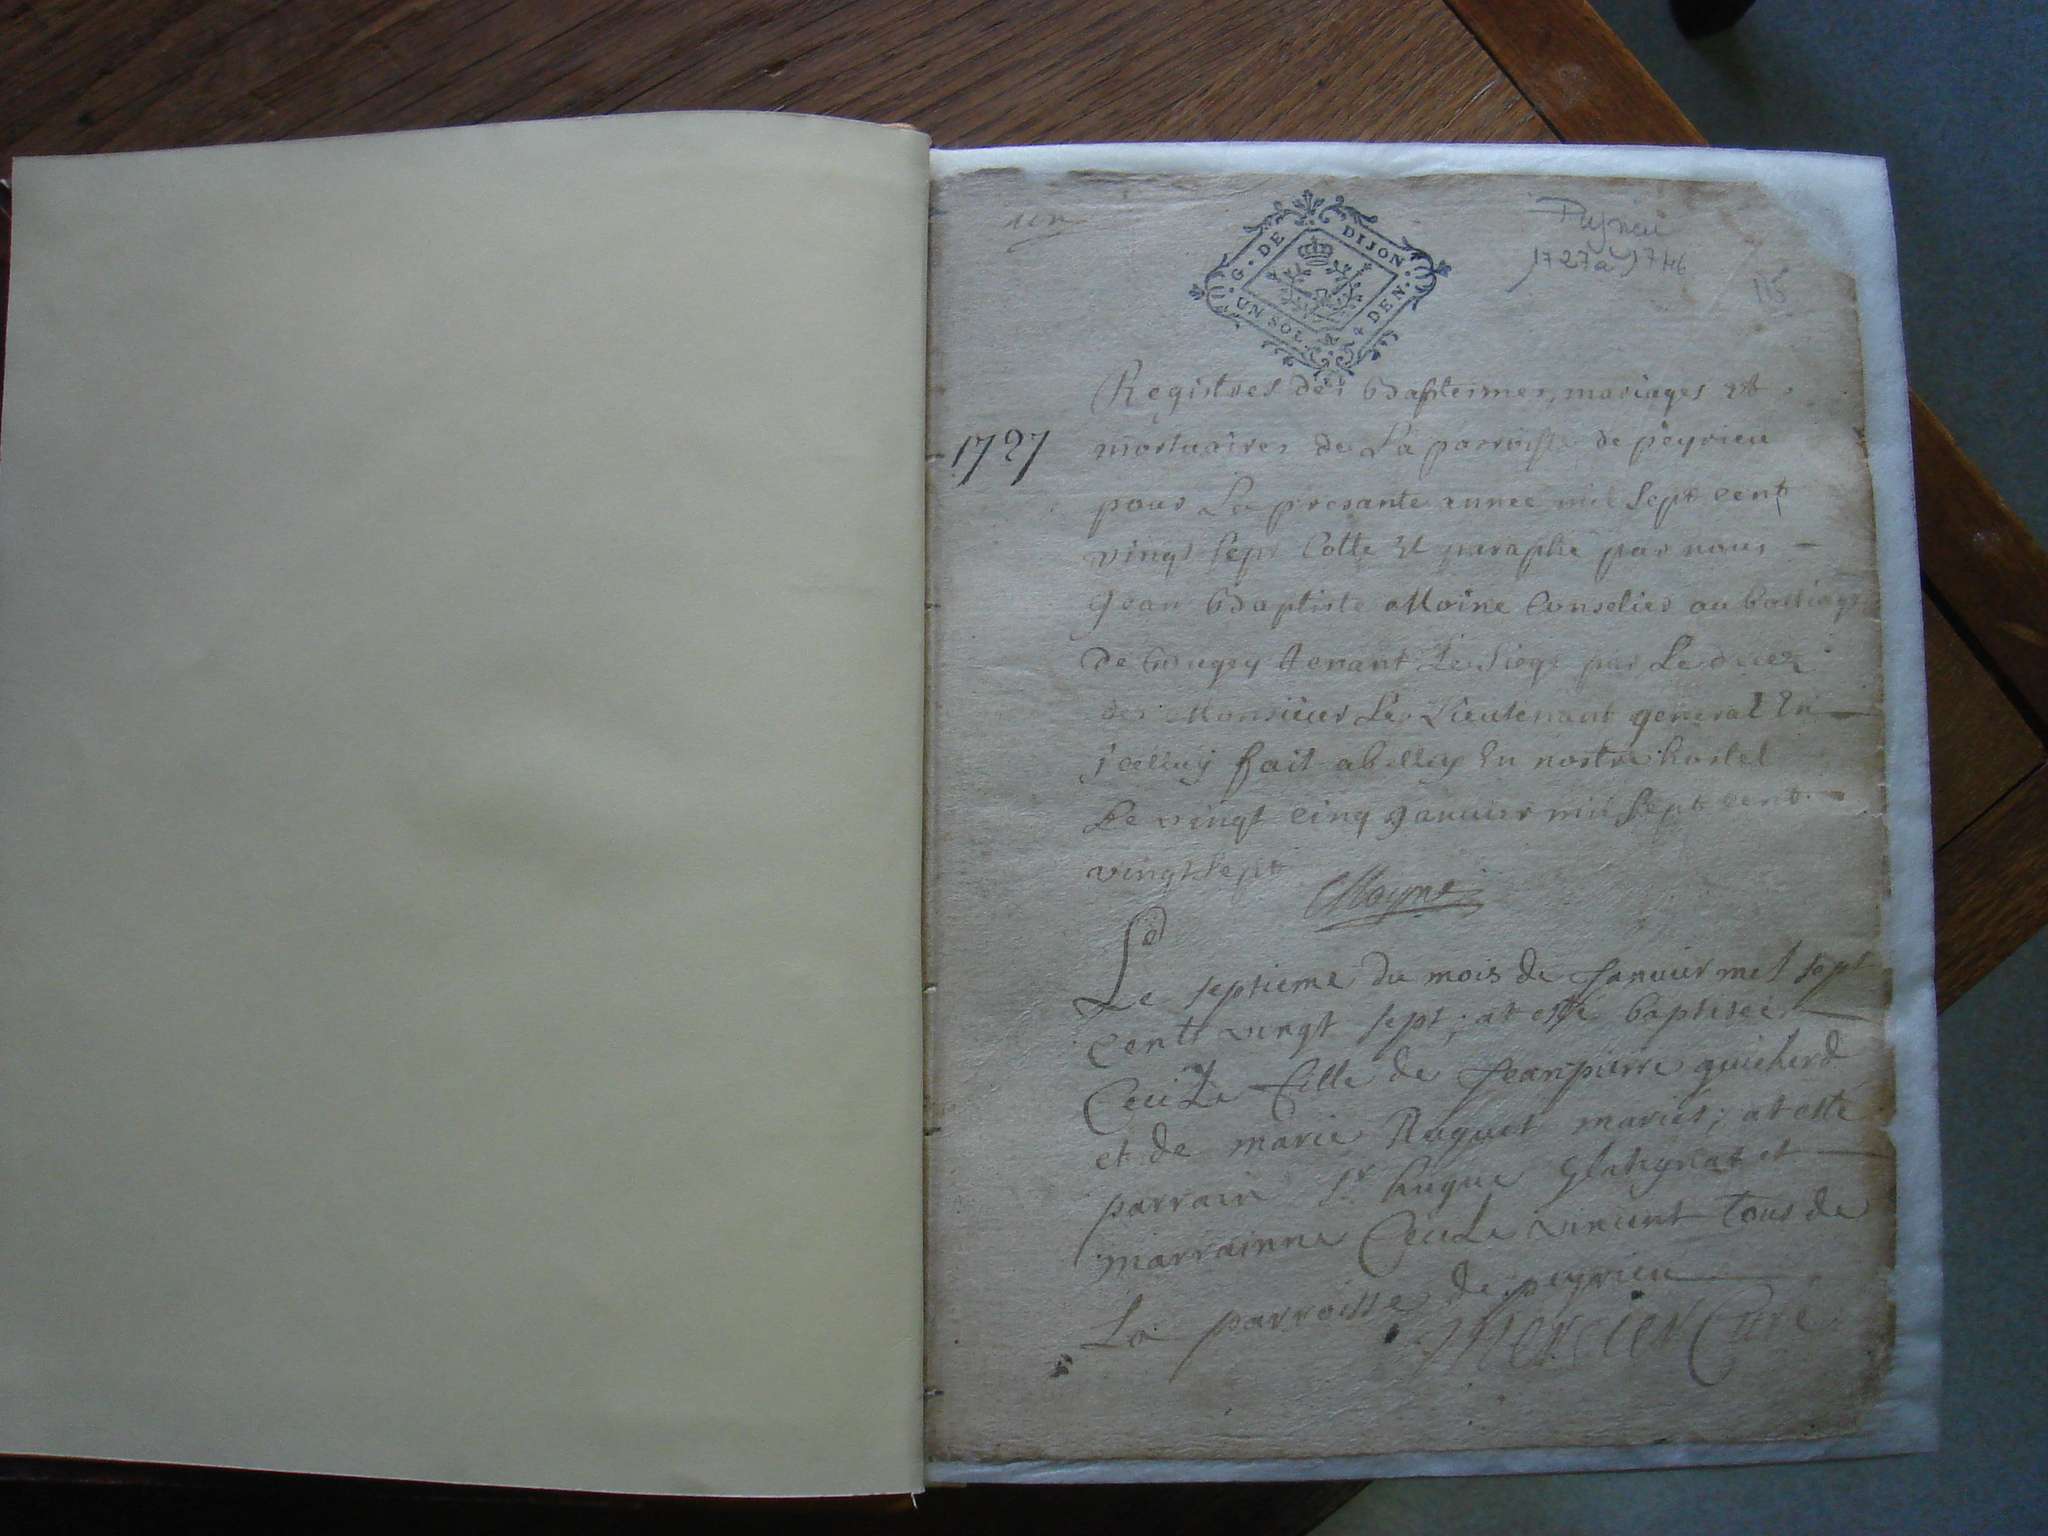 1er
G. DE DIJON.
UN SOL. 4 DEN.
Peyrieu
1727 a 1746
115
Registres des Baptesmes, mariages et
1727
mortuaires de La parroisse de peyrieu
pour La presante année mil sept cent
vingt sept Cotté Et paraphé par nous
Jean Baptiste Moine Conselier au Bailliage
de Bugey tenant Le siege par Le decez
de Monsieur Le Lieutenant general En
jcelluy fait a belley En nostre hostel
Le vingt cinq Janvier mil sept cent
vingt sept
Moyne
Le septieme du mois de Janvier mel sept
centt vingt sept; at esté baptisée
Cecile fille de Jeanpierre guicherd
et de marie Ruguet mariés; at esté
parrain Sr hugue Glatignat et
marrainne Cecile vincent tous de
La parroisse de peyrieu
Mercier Curé